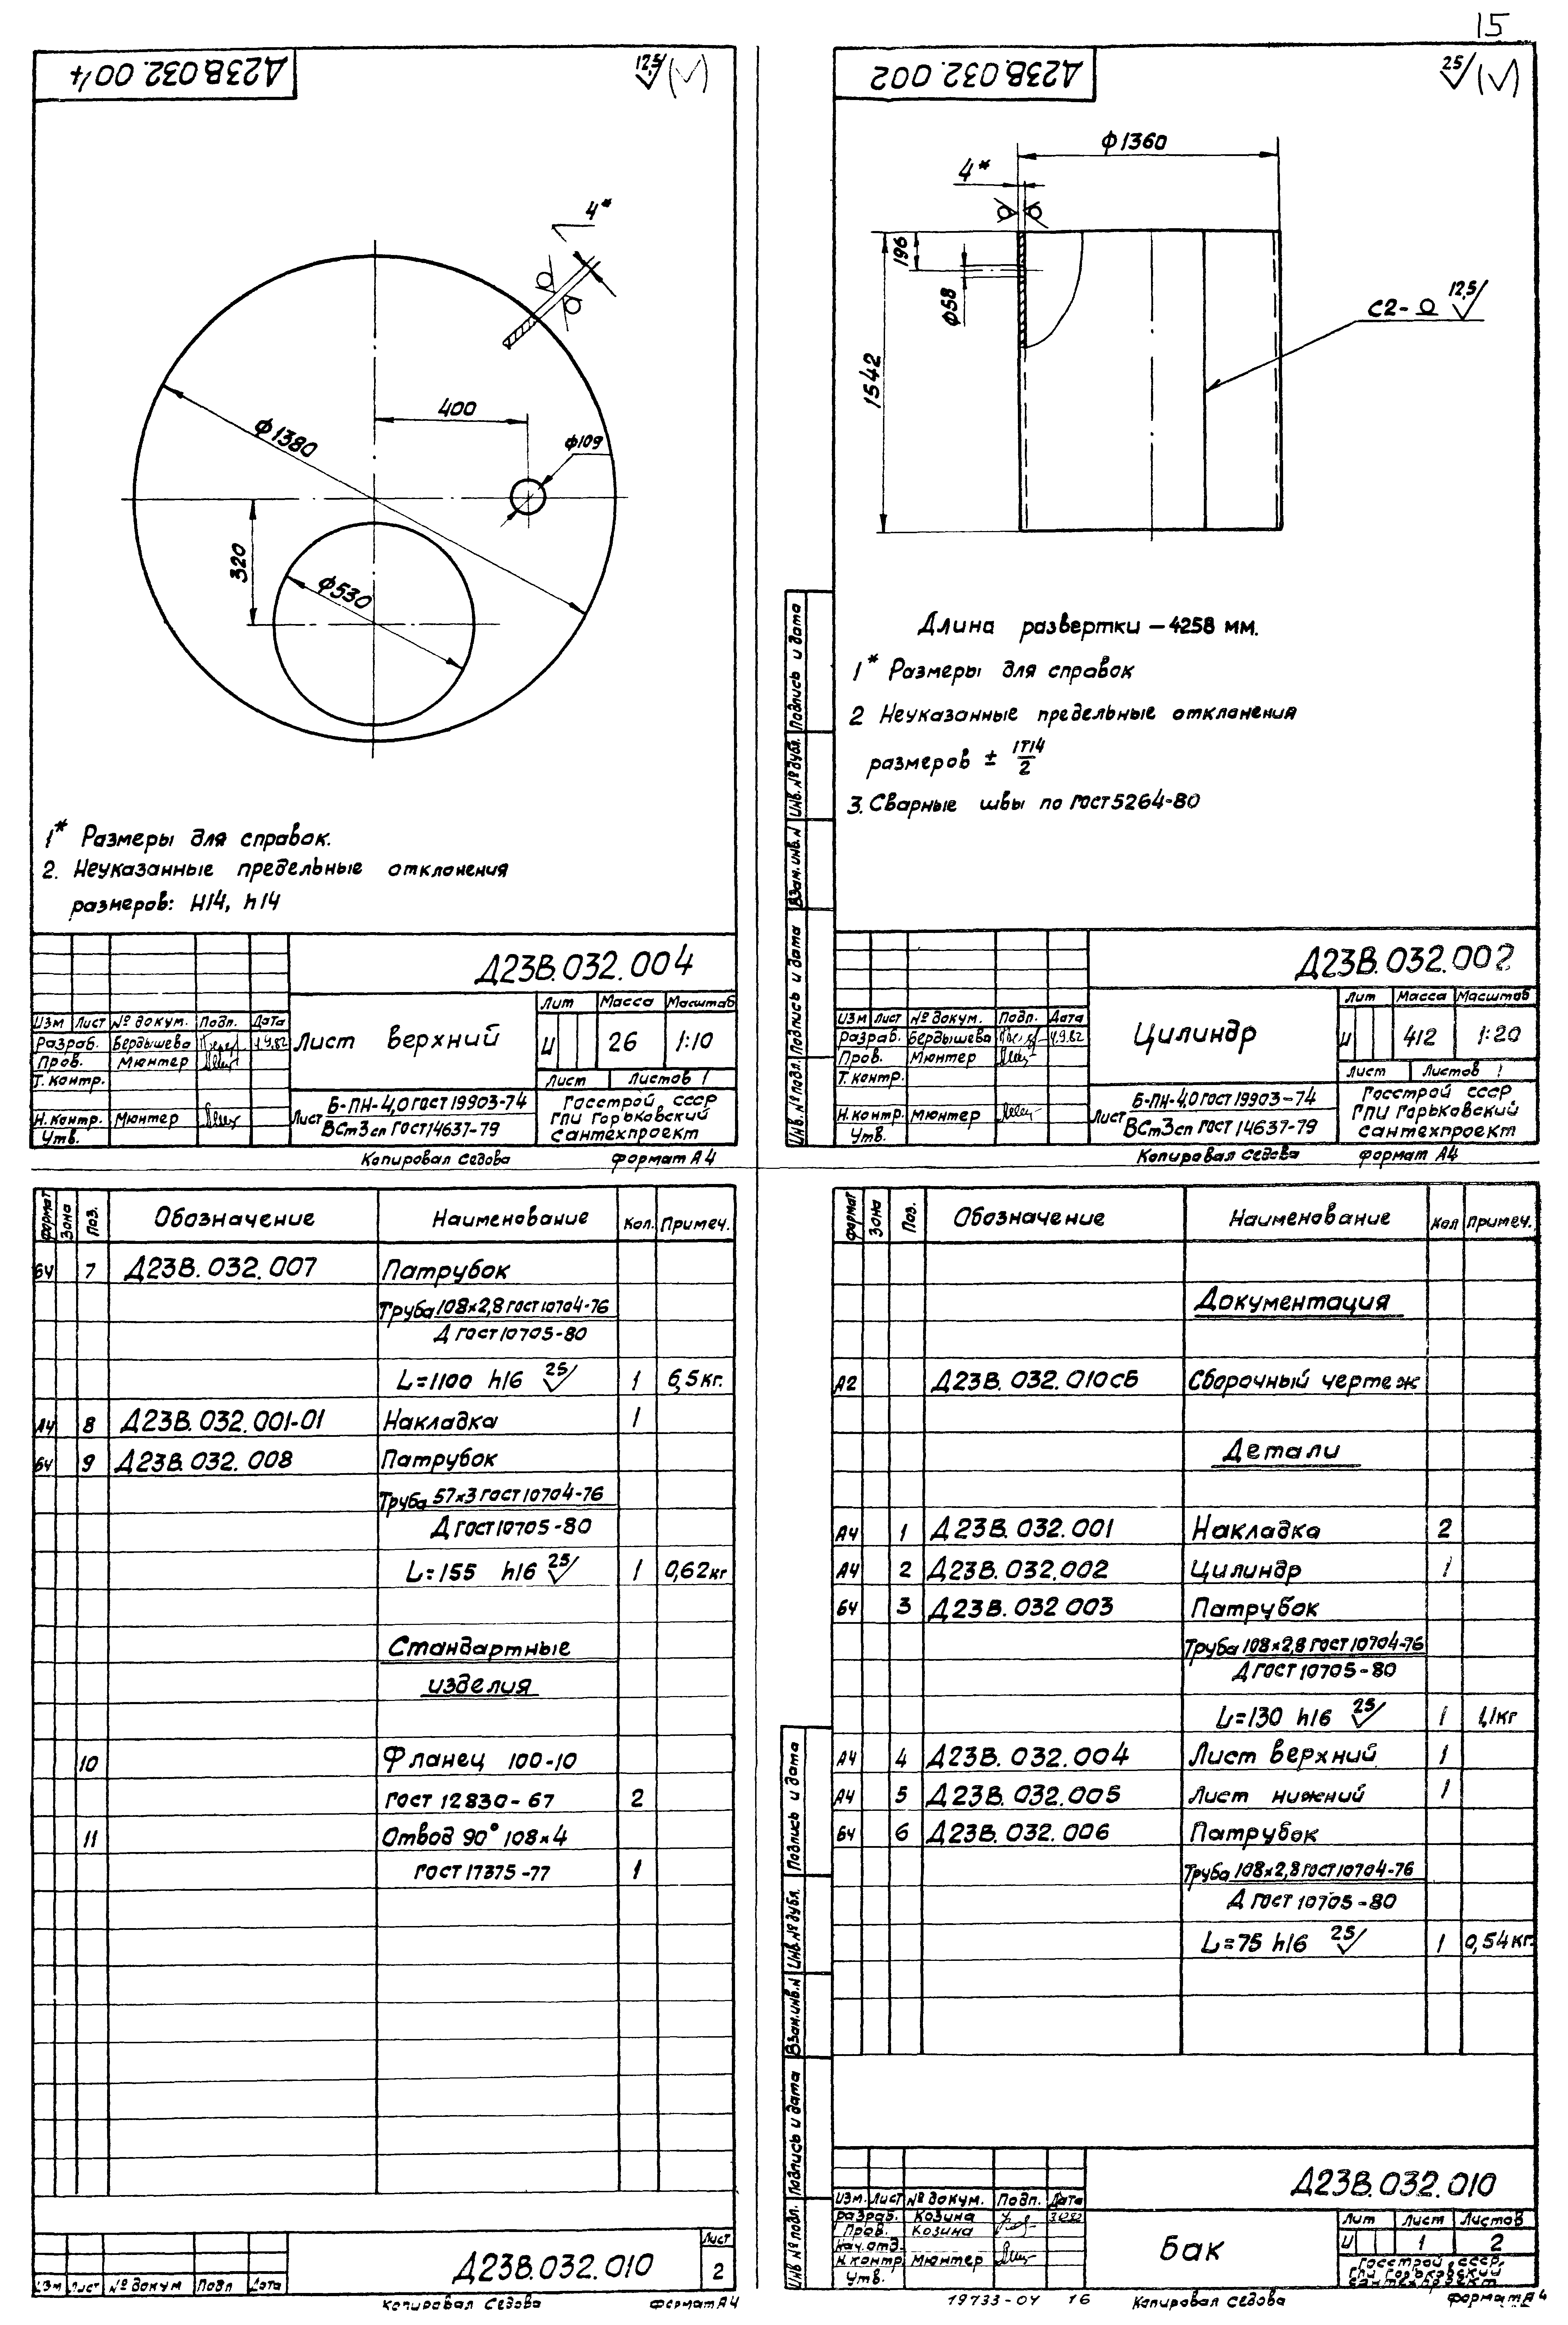 15
Д23В.032.004
12,5 (√)
4*
400
ϕ1380
ϕ109
320
ϕ530
1* Размеры для справок.
2. Неуказанные предельные отклонения
размеров: H14, h14
Д23В.032.004
Лист верхний
Лит Масса Масштаб
И 26 1:10
Лист Листов 1
Изм Лист № докум. Подп. Дата
Разраб. Бердышева 1.9.82
Пров. Мюнтер
Т. контр.
Н. контр. Мюнтер
Утв.
Лист Б-ПН-4,0 ГОСТ 19903-74
ВСт3сп ГОСТ 14637-79
Госстрой СССР
ГПИ Горьковский
сантехпроект
Копировал Седова формат А4
Д23В.032.002
25 (√)
ϕ1360
4*
196
ϕ58
1542
С2- 12,5
Длина развертки – 4258 мм.
1* Размеры для справок
2 Неуказанные предельные отклонения
размеров ± IT14/2
3. Сварные швы по ГОСТ 5264-80
Подпись и дата
Инв. № дубл.
Взам. инв. №
Подпись и дата
Инв. № подл.
Д23В.032.002
Цилиндр
Лит Масса Масштаб
И 412 1:20
Лист Листов 1
Изм Лист № докум. Подп. Дата
Разраб. Бердышева 1.9.82
Пров. Мюнтер
Т. контр.
Н. контр. Мюнтер
Утв.
Лист Б-ПН-4,0 ГОСТ 19903-74
ВСт3сп ГОСТ 14637-79
Госстрой СССР
ГПИ Горьковский
сантехпроект
Копировал Седова формат А4
формат Зона Поз. Обозначение Наименование Кол. Примеч.
БЧ 7 Д23В.032.007 Патрубок
Труба 108×2,8 ГОСТ 10704-76
Д ГОСТ 10705-80
L=1100 h16 25 1 6,5 кг.
А4 8 Д23В.032.001-01 Накладка 1
БЧ 9 Д23В.032.008 Патрубок
Труба 57×3 ГОСТ 10704-76
Д ГОСТ 10705-80
L=155 h16 25 1 0,62 кг
Стандартные
изделия
10 Фланец 100-10
ГОСТ 12830-67 2
11 Отвод 90° 108×4
ГОСТ 17375-77 1
Изм Лист № докум Подп Дата
Д23В.032.010
Лист
2
Копировал Седова формат А4
формат Зона Поз. Обозначение Наименование Кол Примеч.
Документация
А2 Д23В.032.010СБ Сборочный чертеж
Детали
А4 1 Д23В.032.001 Накладка 2
А4 2 Д23В.032.002 Цилиндр 1
БЧ 3 Д23В.032 003 Патрубок
Труба 108×2,8 ГОСТ 10704-76
Д ГОСТ 10705-80
L=130 h16 25 1 1,1кг
А4 4 Д23В.032.004 Лист верхний 1
А4 5 Д23В.032.005 Лист нижний 1
БЧ 6 Д23В.032.006 Патрубок
Труба 108×2,8 ГОСТ 10704-76
Д ГОСТ 10705-80
L=75 h16 25 1 0,54 кг.
Подпись и дата
Инв. № дубл.
Взам. инв. №
Подпись и дата
Инв № подл.
Д23В.032.010
Бак
Изм. Лист № докум. Подп. Дата
Разраб. Козина
Пров. Козина
Нач. отд.
Н. контр Мюнтер
Утв.
Лит Лист Листов
И 1 2
Госстрой СССР.
ГПИ Горьковский
сантехпроект
19733-04 16 Копировал Седова формат А4